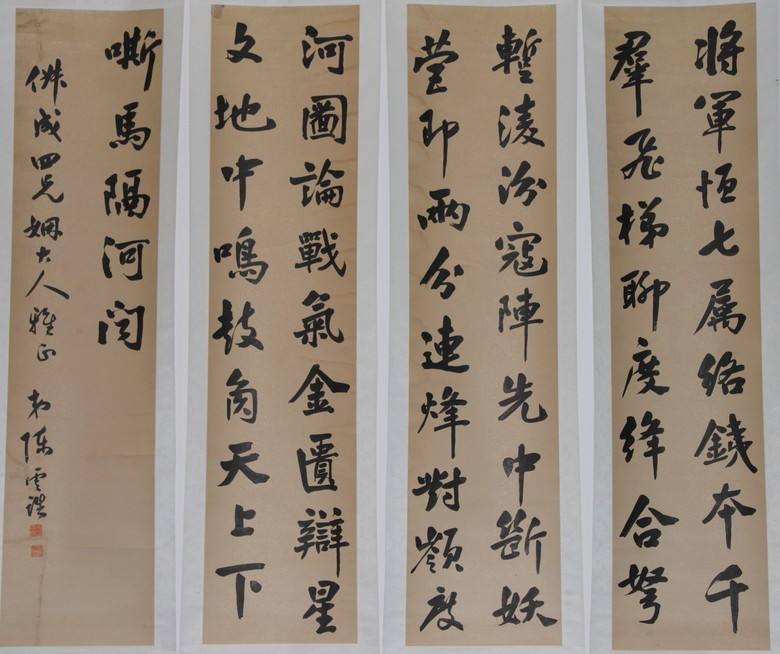 將軍恒七属絡鐵本千
羣飛梯聊度絳合弩
暫淩汾寇陣先中斷妖
營即兩分連烽對嶺度
河圖論戰氣金匱辯星
文地中鳴鼓角天上下
嘶馬隔河闻
成四兄姻大人雅正 弟陳雲誥